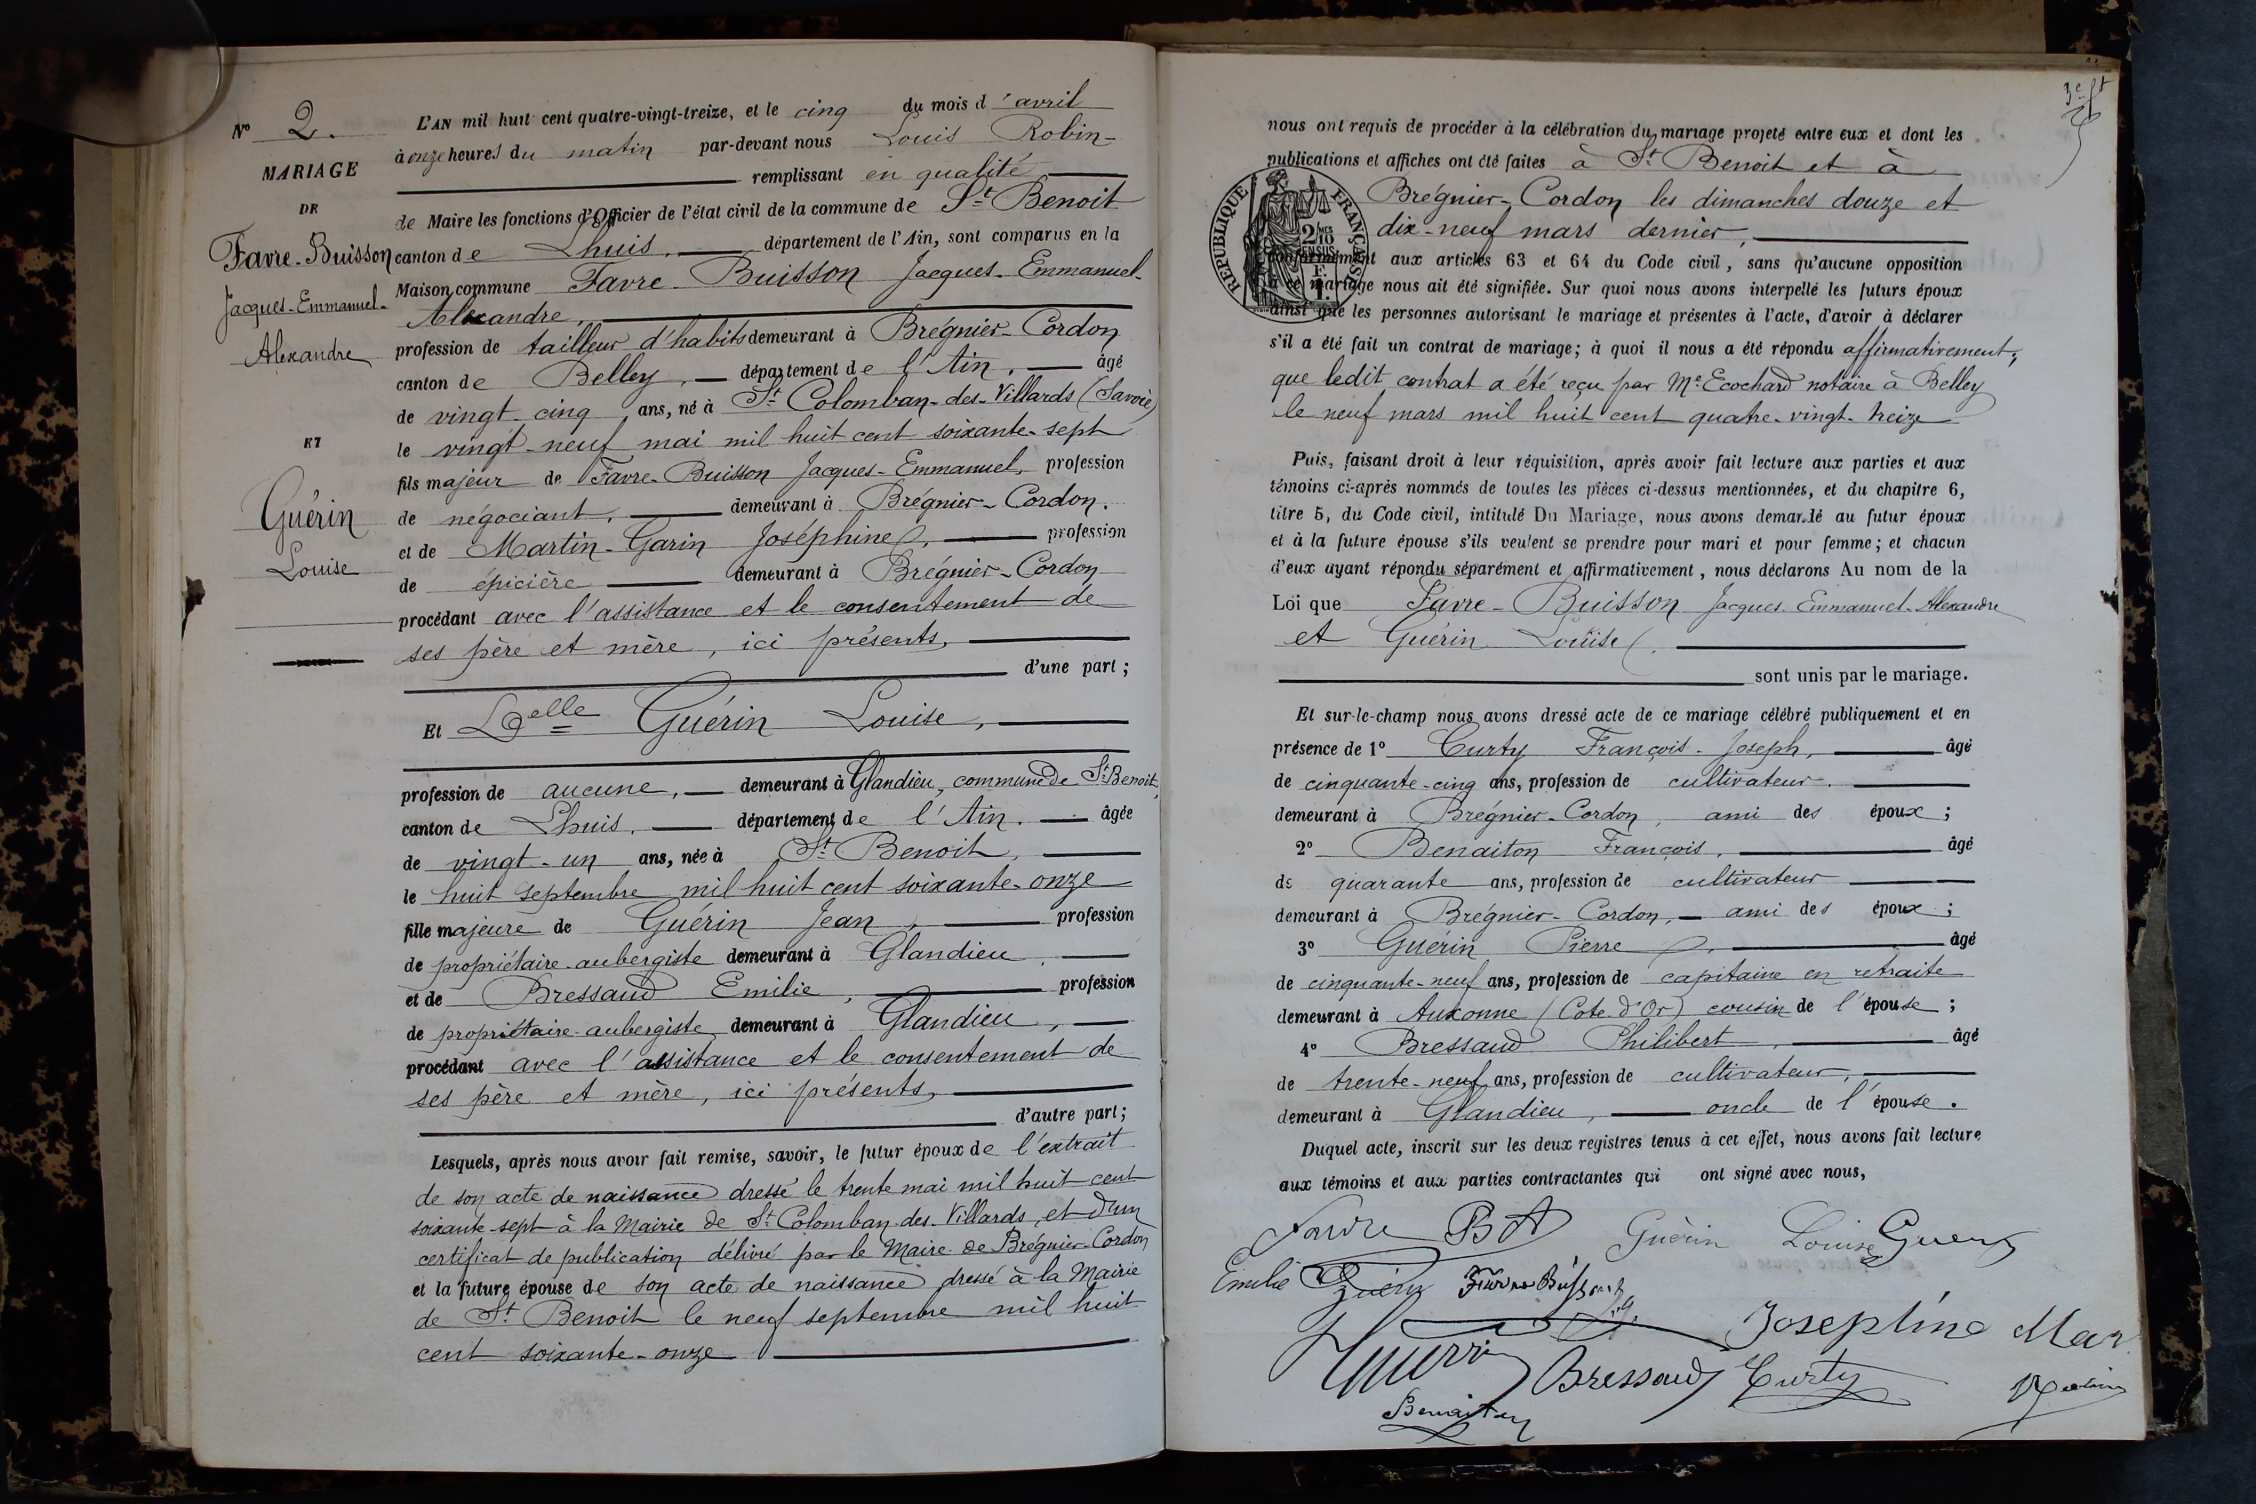 N° 2.
MARIAGE
DE
Favre-Buisson
Jacques-Emmanuel-
Alexandre
ET
Guérin
Louise
L'AN mil huit cent quatre-vingt-treize, et le cinq du mois d'avril
à onze heures du matin par-devant nous Louis Robin-
remplissant en qualité
de Maire les fonctions d'Officier de l'état civil de la commune de St Benoit
canton de Lhuis, département de l'Ain, sont comparus en la
Maison commune Favre-Buisson Jacques-Emmanuel-
Alexandre,
profession de tailleur d'habits demeurant à Brégnier-Cordon
canton de Belley, département de l'Ain, âgé
de vingt-cinq ans, né à St Colomban-des-Villards (Savoie)
le vingt-neuf mai mil huit cent soixante-sept
fils majeur de Favre-Buisson Jacques-Emmanuel, profession
de négociant, demeurant à Brégnier-Cordon.
et de Martin-Garin Joséphine, profession
de épicière demeurant à Brégnier-Cordon
procédant avec l'assistance et le consentement de
ses père et mère, ici présents,
d'une part;
Et Delle Guérin Louise,
profession de aucune, demeurant à Glandieu, commune de St Benoit,
canton de Lhuis, département de l'Ain. âgée
de vingt-un ans, née à St Benoit,
le huit septembre mil huit cent soixante-onze
fille majeure de Guérin Jean, profession
de propriétaire-aubergiste demeurant à Glandieu,
et de Bressaud Emilie, profession
de propriétaire-aubergiste demeurant à Glandieu,
procédant avec l'assistance et le consentement de
ses père et mère, ici présents,
d'autre part;
Lesquels, après nous avoir fait remise, savoir, le futur époux de l'extrait
de son acte de naissance dressé le trente mai mil huit cent
soixante-sept à la Mairie de St Colomban-des-Villards, et d'un
certificat de publication délivré par le Maire de Brégnier-Cordon
et la future épouse de son acte de naissance dressé à la Mairie
de St Benoit le neuf septembre mil huit
cent soixante-onze
nous ont requis de procéder à la célébration du mariage projeté entre eux et dont les
publications et affiches ont été faites à St Benoit et à
Brégnier-Cordon les dimanches douze et
dix-neuf mars dernier,
RÉPUBLIQUE FRANÇAISE
conformément aux articles 63 et 64 du Code civil, sans qu'aucune opposition
à ce mariage nous ait été signifiée. Sur quoi nous avons interpellé les futurs époux
ainsi que les personnes autorisant le mariage et présentes à l'acte, d'avoir à déclarer
s'il a été fait un contrat de mariage; à quoi il nous a été répondu affirmativement,
que ledit contrat a été reçu par Me Ecochard notaire à Belley
le neuf mars mil huit cent quatre-vingt-treize
Puis, faisant droit à leur réquisition, après avoir fait lecture aux parties et aux
témoins ci-après nommés de toutes les pièces ci-dessus mentionnées, et du chapitre 6,
titre 5, du Code civil, intitulé Du Mariage, nous avons demandé au futur époux
et à la future épouse s'ils veulent se prendre pour mari et pour femme; et chacun
d'eux ayant répondu séparément et affirmativement, nous déclarons Au nom de la
Loi que Favre-Buisson Jacques-Emmanuel-Alexandre
et Guérin Louise.
sont unis par le mariage.
Et sur-le-champ nous avons dressé acte de ce mariage célébré publiquement et en
présence de 1° Curty François-Joseph, âgé
de cinquante-cinq ans, profession de cultivateur.
demeurant à Brégnier-Cordon, ami des époux;
2° Benaiton François, âgé
de quarante ans, profession de cultivateur
demeurant à Brégnier-Cordon, ami des époux;
3° Guérin Pierre, âgé
de cinquante-neuf ans, profession de capitaine en retraite
demeurant à Auxonne (Cote d'Or) cousin de l'épouse;
4° Bressaud Philibert, âgé
de trente-neuf ans, profession de cultivateur,
demeurant à Glandieu, oncle de l'épouse.
Duquel acte, inscrit sur les deux registres tenus à cet effet, nous avons fait lecture
aux témoins et aux parties contractantes qui ont signé avec nous,
Favre BA Guérin Louise Guerin
Emilie Guérin Favre Buisson
Joséphine Mar
Guerin Bressaud Curty
Benaiton